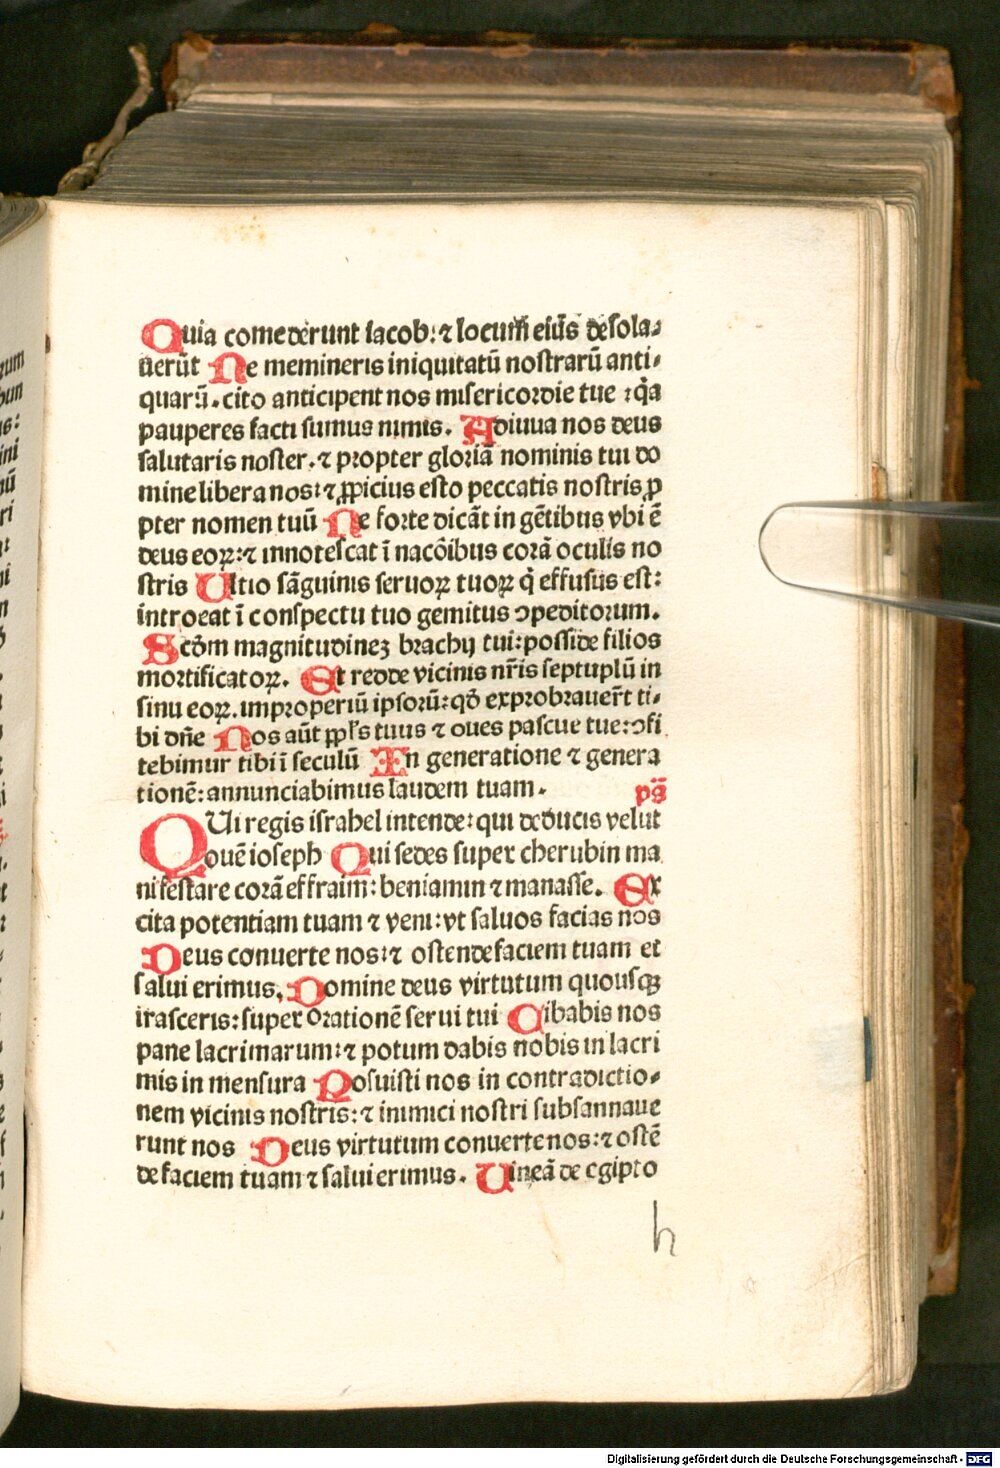 Quia comederunt iacob: ⁊ locum̄ eiūs desola⸗
uerūt Ne memineris iniquitatū nostrarū anti⸗
quarū. cito anticipent nos misericordie tue : q̄a
pauperes facti sumus nimis. Adiuua nos deus
salutaris noster. ⁊ propter gloriā nominis tui do
mine libera nos: ⁊ ꝓpicius esto peccatis nostris ꝓ
pter nomen tuū Ne forte dicāt in gētibus vbi ē
deus eoꝝ: ⁊ innotescat ī nacōibus corā oculis no
stris Ultio sāguinis seruoꝝ tuoꝝ q̄ effusus est:
introeat ī conspectu tuo gemitus ↄpeditorum.
Scd̄m magnitudineꝫ brachij tui: posside filios
mortificatoꝝ. Et redde vicinis nr̄is septuplū in
sinu eoꝝ. improperiū ipsorū: qd̄ exprobrauer̄t ti⸗
bi dn̄e Nos aūt ppl̄s tuus ⁊ oues pascue tue: ↄfi
tebimur tibi ī seculū In generatione ⁊ genera
tionē: annunciabimus laudem tuam. pš
QUi regis israhel intende: qui deducis velut
ouē ioseph Qui sedes super cherubin ma
nifestare corā effraim: beniamin ⁊ manasse. Ex
cita potentiam tuam ⁊ veni: vt saluos facias nos
Deus conuerte nos: ⁊ ostende faciem tuam et
salui erimus. Domine deus virtutum quousqꝫ
irasceris: super orationē serui tui Cibabis nos
pane lacrimarum: ⁊ potum dabis nobis in lacri
mis in mensura Posuisti nos in contradictio⸗
nem vicinis nostris: ⁊ inimici nostri subsannaue
runt nos Deus virtutum conuerte nos: ⁊ ostē
de faciem tuam ⁊ salui erimus. Uineā de egipto
h
Digitalisierung gefördert durch die Deutsche Forschungsgemeinschaft - DFG